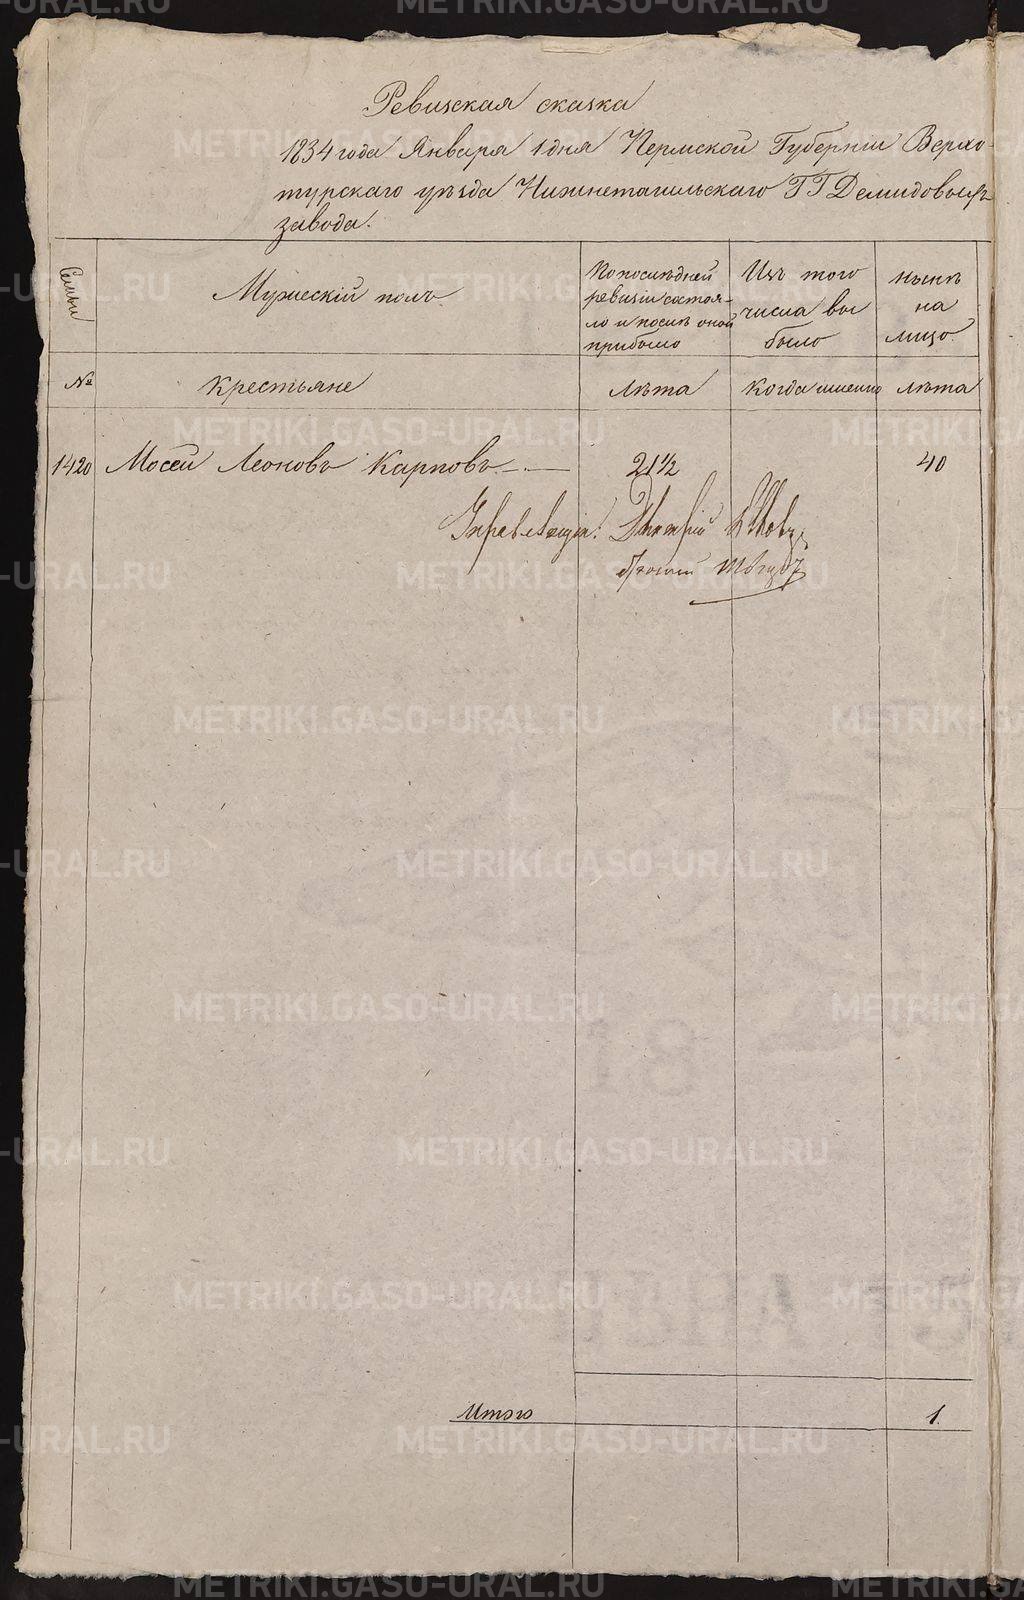 Ревизская сказка
1834 года Января 1 дня Пермской Губернiи Верхо-
турскаго уѣзда Нижнетагильскаго ГГ Демидовыхъ
завода.
Семьи
Мужескiй полъ
По послѣдней
ревизiи состоя-
ло и послѣ оной
прибыло
Изъ того
числа вы
было
нынѣ
на
лицо.
№
Крестьяне
Лѣта
Когда именно
лѣта
1420 Мосей Леоновъ Карповъ 21½ 40
Управляющiй: Дмитрiй
Итого 1.
METRIKI.GASO-URAL.RU